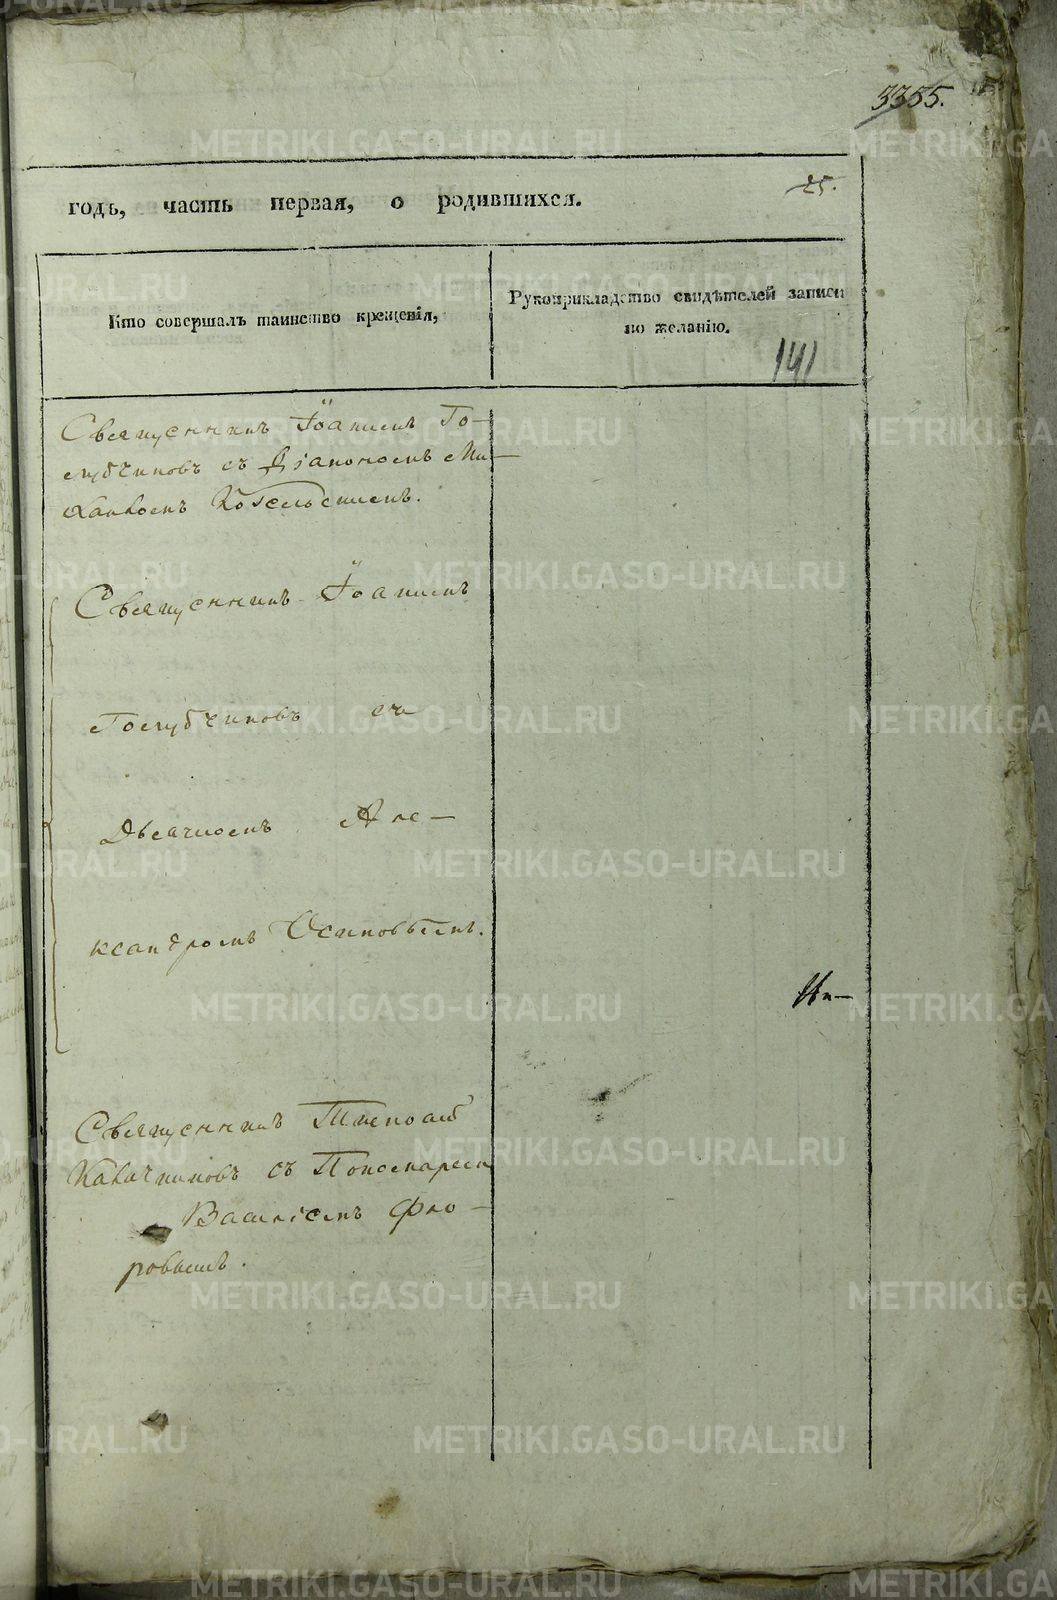 3355.
годъ, часть первая, о родившихся.
25.
Кто совершалъ таинство крещенія,
Рукоприкладство свидѣтелей записи
по желанію.
141
Священникъ Іоаннъ Го-
лубчиковъ съ Діакономъ Ми-
Священникъ Іоаннъ
Голубчиковъ съ
Дьячкомъ Але-
ксандромъ Осиповымъ.
Священникъ Тимофей
съ Пономаремъ
Василіемъ Фло-
ровымъ.
METRIKI.GASO-URAL.RU